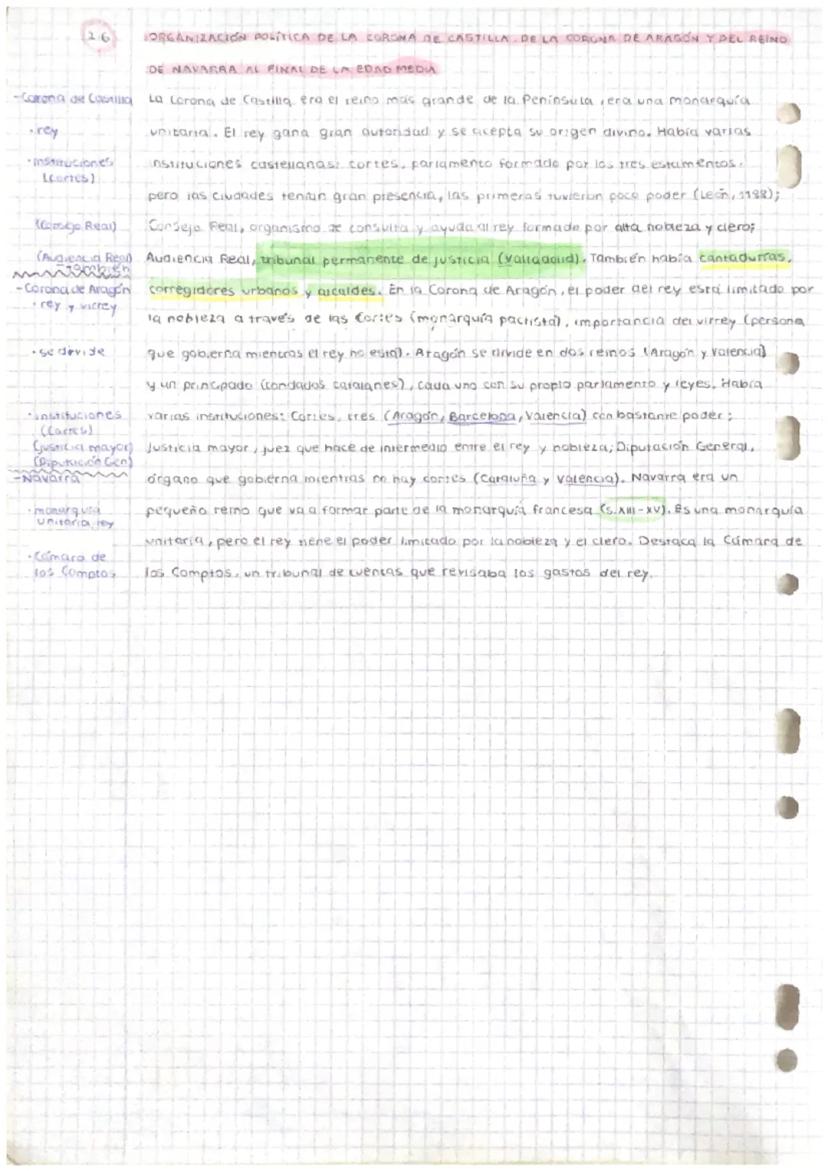 2.6 ORGANIZACIÓN POLÍTICA DE LA CORONA DE CASTILLA, DE LA CORONA DE ARAGÓN Y DEL REINO
DE NAVARRA AL FINAL DE LA EDAD MEDIA
-Corona de Castilla La Corona de Castilla era el reino más grande de la Península, era una monarquía
·rey unitaria. El rey gana gran autoridad y se acepta su origen divino. Había varias
·instituciones instituciones castellanas: cortes, parlamento formado por los tres estamentos,
(cortes) pero las ciudades tenían gran presencia, las primeras tuvieron poco poder (León, 1188);
(Consejo Real) Consejo Real, organismo de consulta y ayuda al rey formado por alta nobleza y clero;
(Audiencia Real) Audiencia Real, tribunal permanente de justicia (Valladolid). También había contadurías,
-también
-Corona de Aragón corregidores urbanos y alcaldes. En la Corona de Aragón, el poder del rey está limitado por
·rey y virrey la nobleza a través de las Cortes (monarquía pactista), importancia del virrey (persona
·se divide que gobierna mientras el rey no está). Aragón se divide en dos reinos (Aragón y Valencia)
y un principado (condados catalanes), cada uno con su propio parlamento y leyes. Había
·instituciones varias instituciones: Cortes, tres (Aragón, Barcelona, Valencia) con bastante poder;
(Cortes)
(justicia mayor) Justicia mayor, juez que hace de intermedio entre el rey y nobleza; Diputación General,
(Diputación Gen)
-Navarra órgano que gobierna mientras no hay cortes (Cataluña y Valencia). Navarra era un
·monarquía pequeño reino que va a formar parte de la monarquía francesa (s.XIII-XV). Es una monarquía
unitaria, rey unitaria, pero el rey tiene el poder limitado por la nobleza y el clero. Destaca la Cámara de
·Cámara de
los Comptos los Comptos, un tribunal de cuentas que revisaba los gastos del rey.